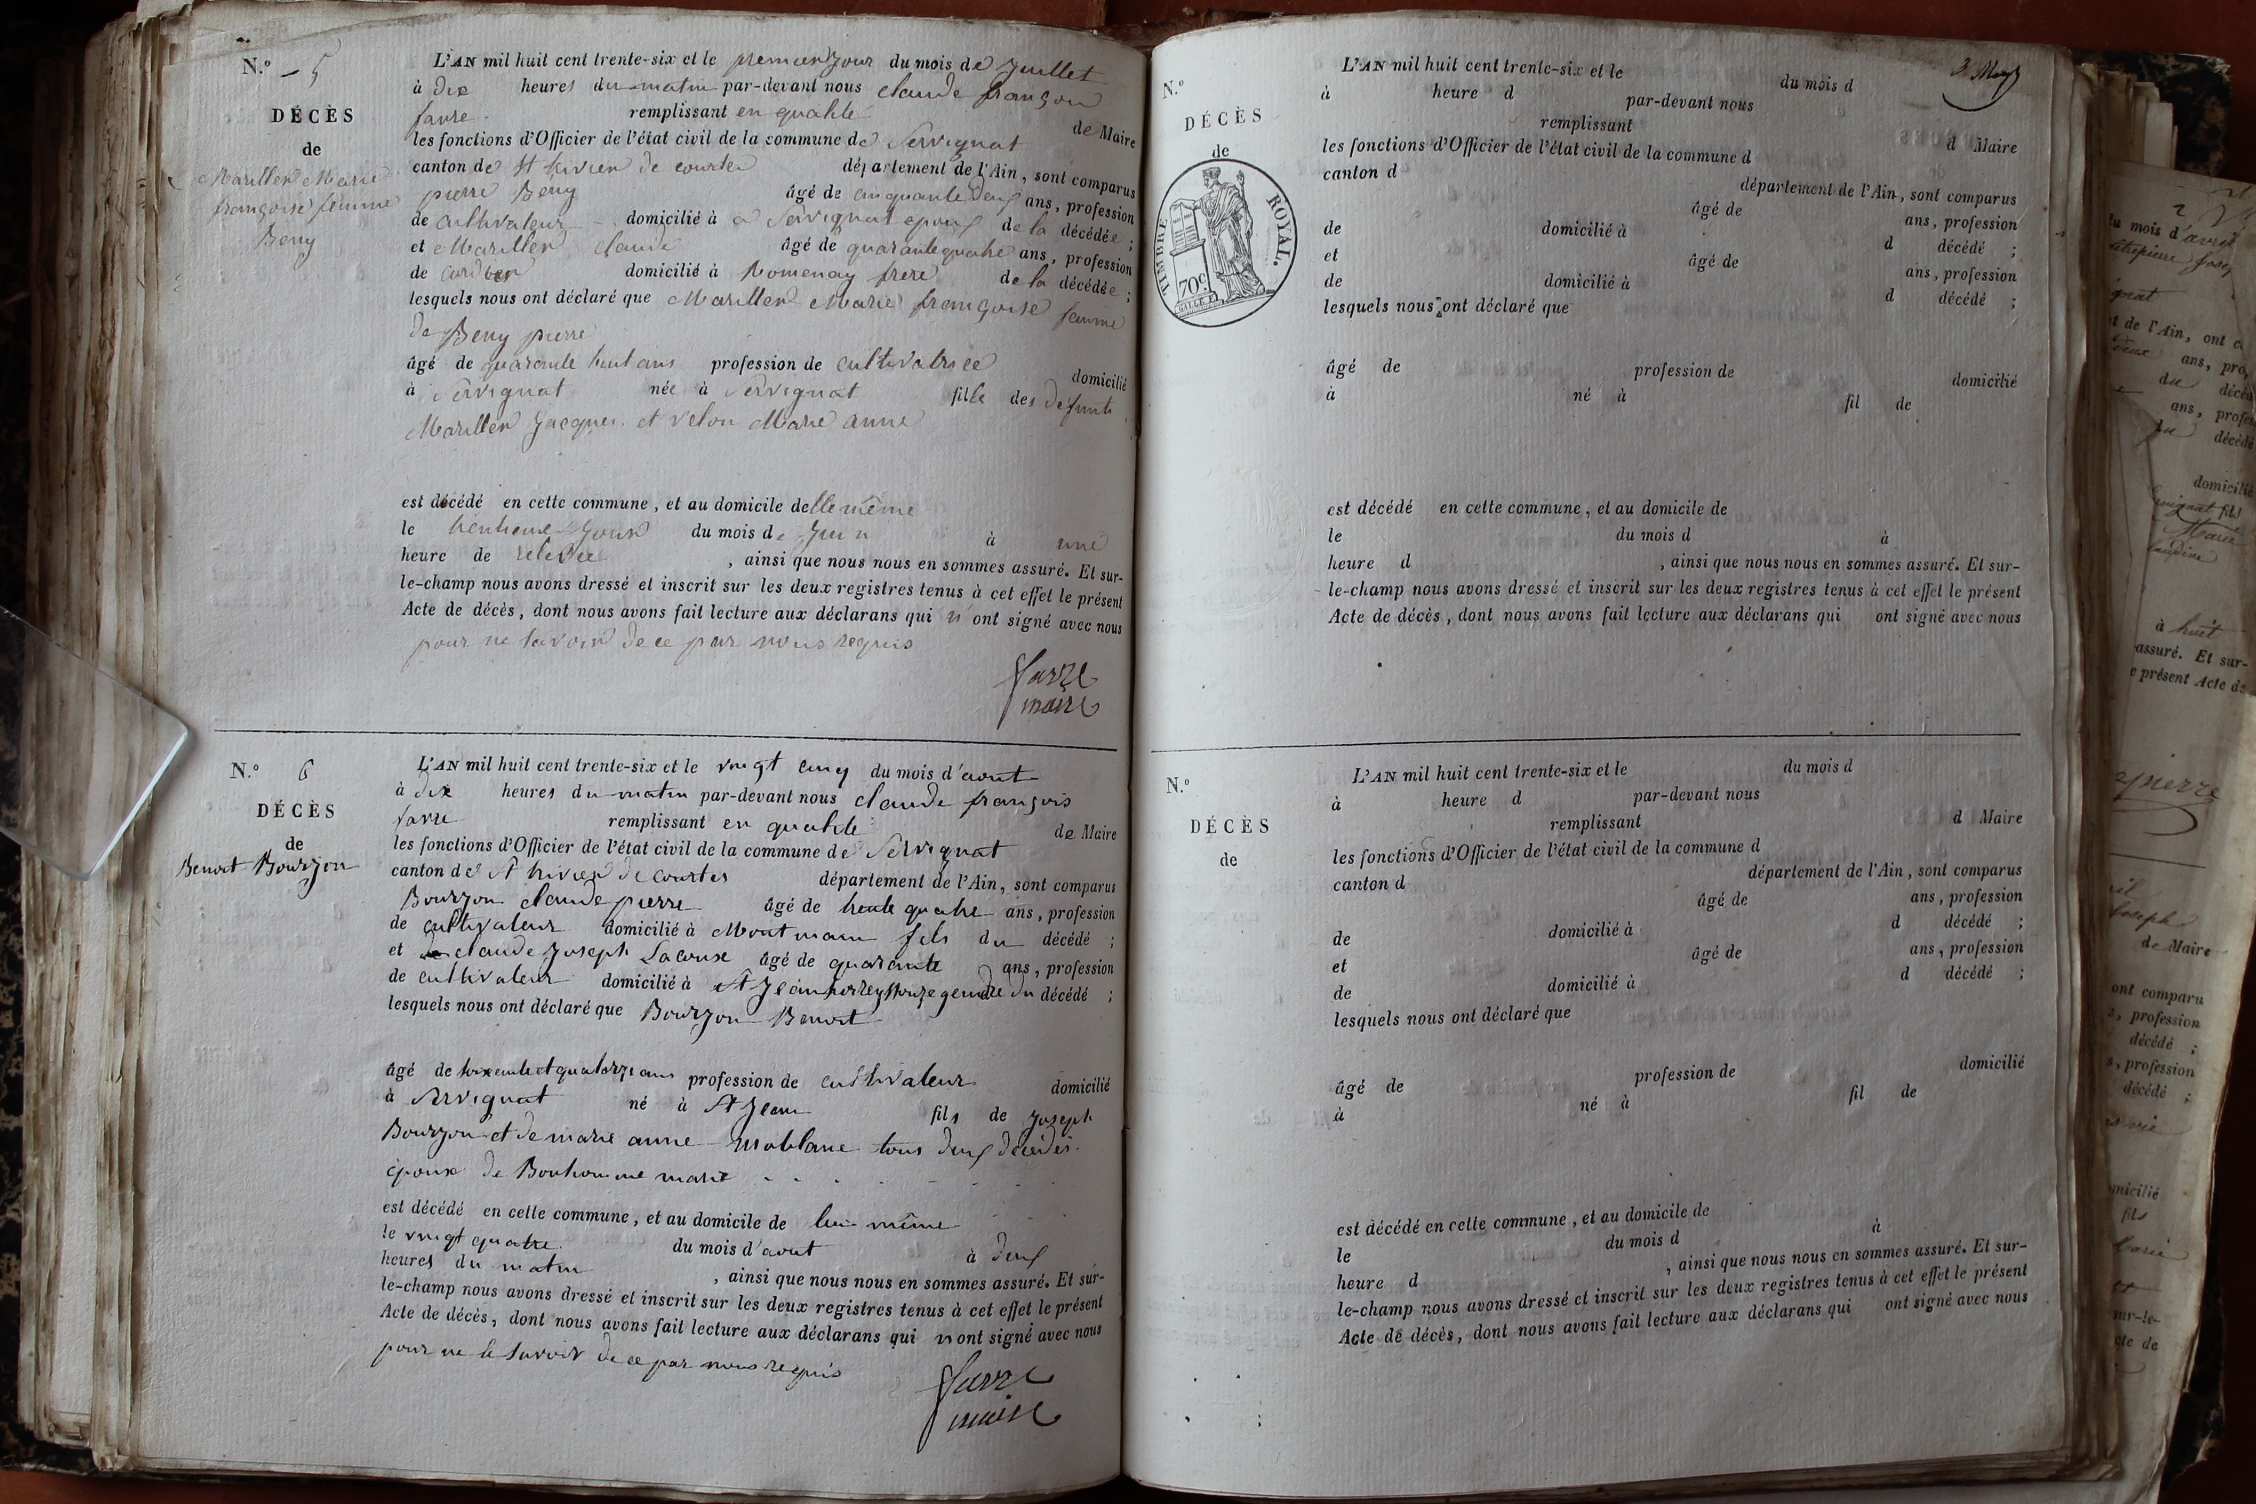 N.º 5
DÉCÈS
de
Mariller Marie
françoise femme
Beny
L'AN mil huit cent trente-six et le premier jour du mois de Juillet
à dix heures du matin par-devant nous claude françois
favre remplissant en qualité de Maire
les fonctions d'Officier de l'état civil de la commune de Servignat
canton de St trivier de courtes département de l'Ain, sont comparus
pierre Beny âgé de cinquante deux ans, profession
de cultivateur domicilié à a Servignat epoux de la décédée ;
et Mariller claude âgé de quarante quatre ans, profession
de domicilié à Romenay frere de la décédée ;
lesquels nous ont déclaré que Mariller Marie françoise femme
de Beny pierre
âgé de quarante huit ans profession de cultivatrice domicilié
à Servignat née à Servignat fille des defunts
Mariller Jacques et velon Marie anne
est décédé en cette commune, et au domicile delle même
le trentieme Jour du mois de Juin à une
heure de relevee , ainsi que nous nous en sommes assuré. Et sur-
le-champ nous avons dressé et inscrit sur les deux registres tenus à cet effet le présent
Acte de décès, dont nous avons fait lecture aux déclarans qui n'ont signé avec nous
pour ne savoir de ce par nous requis
favre
maire
N.º 6
DÉCÈS
de
Benoit Bourjon
L'AN mil huit cent trente-six et le vingt cinq du mois d'aout
à dix heures du matin par-devant nous claude françois
favre remplissant en qualité de Maire
les fonctions d'Officier de l'état civil de la commune de Servignat
canton de St trivier de courtes département de l'Ain, sont comparus
Bourjon claude pierre âgé de trente quatre ans, profession
de cultivateur domicilié à Montmain fils du décédé ;
et claude Joseph Lacoux âgé de quarante ans, profession
de cultivateur domicilié à St Jean gendre du décédé ;
lesquels nous ont déclaré que Bourjon Benoit
âgé de soixante et quatorze ans profession de cultivateur domicilié
à Servignat né à St Jean fils de Joseph
Bourjon et de marie anne Moblanc tous deux décédés
époux de Bonhomme marie
est décédé en cette commune, et au domicile de lui même
le vingt quatre du mois d'aout à deux
heures du matin , ainsi que nous nous en sommes assuré. Et sur-
le-champ nous avons dressé et inscrit sur les deux registres tenus à cet effet le présent
Acte de décès, dont nous avons fait lecture aux déclarans qui n'ont signé avec nous
pour ne le savoir de ce par nous requis
favre
maire
N.º
DÉCÈS
de
TIMBRE ROYAL.
70c
L'AN mil huit cent trente-six et le du mois d
à heure d par-devant nous
remplissant d Maire
les fonctions d'Officier de l'état civil de la commune d
canton d département de l'Ain, sont comparus
âgé de ans, profession
de domicilié à d décédé ;
et âgé de ans, profession
de domicilié à d décédé ;
lesquels nous ont déclaré que
âgé de profession de domicilié
à né à fil de
est décédé en cette commune, et au domicile de
le du mois d à
heure d , ainsi que nous nous en sommes assuré. Et sur-
le-champ nous avons dressé et inscrit sur les deux registres tenus à cet effet le présent
Acte de décès, dont nous avons fait lecture aux déclarans qui ont signé avec nous
N.º
DÉCÈS
de
L'AN mil huit cent trente-six et le du mois d
à heure d par-devant nous
remplissant d Maire
les fonctions d'Officier de l'état civil de la commune d
canton d département de l'Ain, sont comparus
âgé de ans, profession
de domicilié à d décédé ;
et âgé de ans, profession
de domicilié à d décédé ;
lesquels nous ont déclaré que
âgé de profession de domicilié
à né à fil de
est décédé en cette commune, et au domicile de
le du mois d à
heure d , ainsi que nous nous en sommes assuré. Et sur-
le-champ nous avons dressé et inscrit sur les deux registres tenus à cet effet le présent
Acte de décès, dont nous avons fait lecture aux déclarans qui ont signé avec nous
du mois d'avril
de l'Ain, ont
ans, pro
du décédé
ans, profes
du décédé
domicilié
fils
Marie
à huit
assuré. Et sur-
présent Acte de
Joseph
de Maire
ont comparu
profession
décédé ;
profession
décédé ;
fils